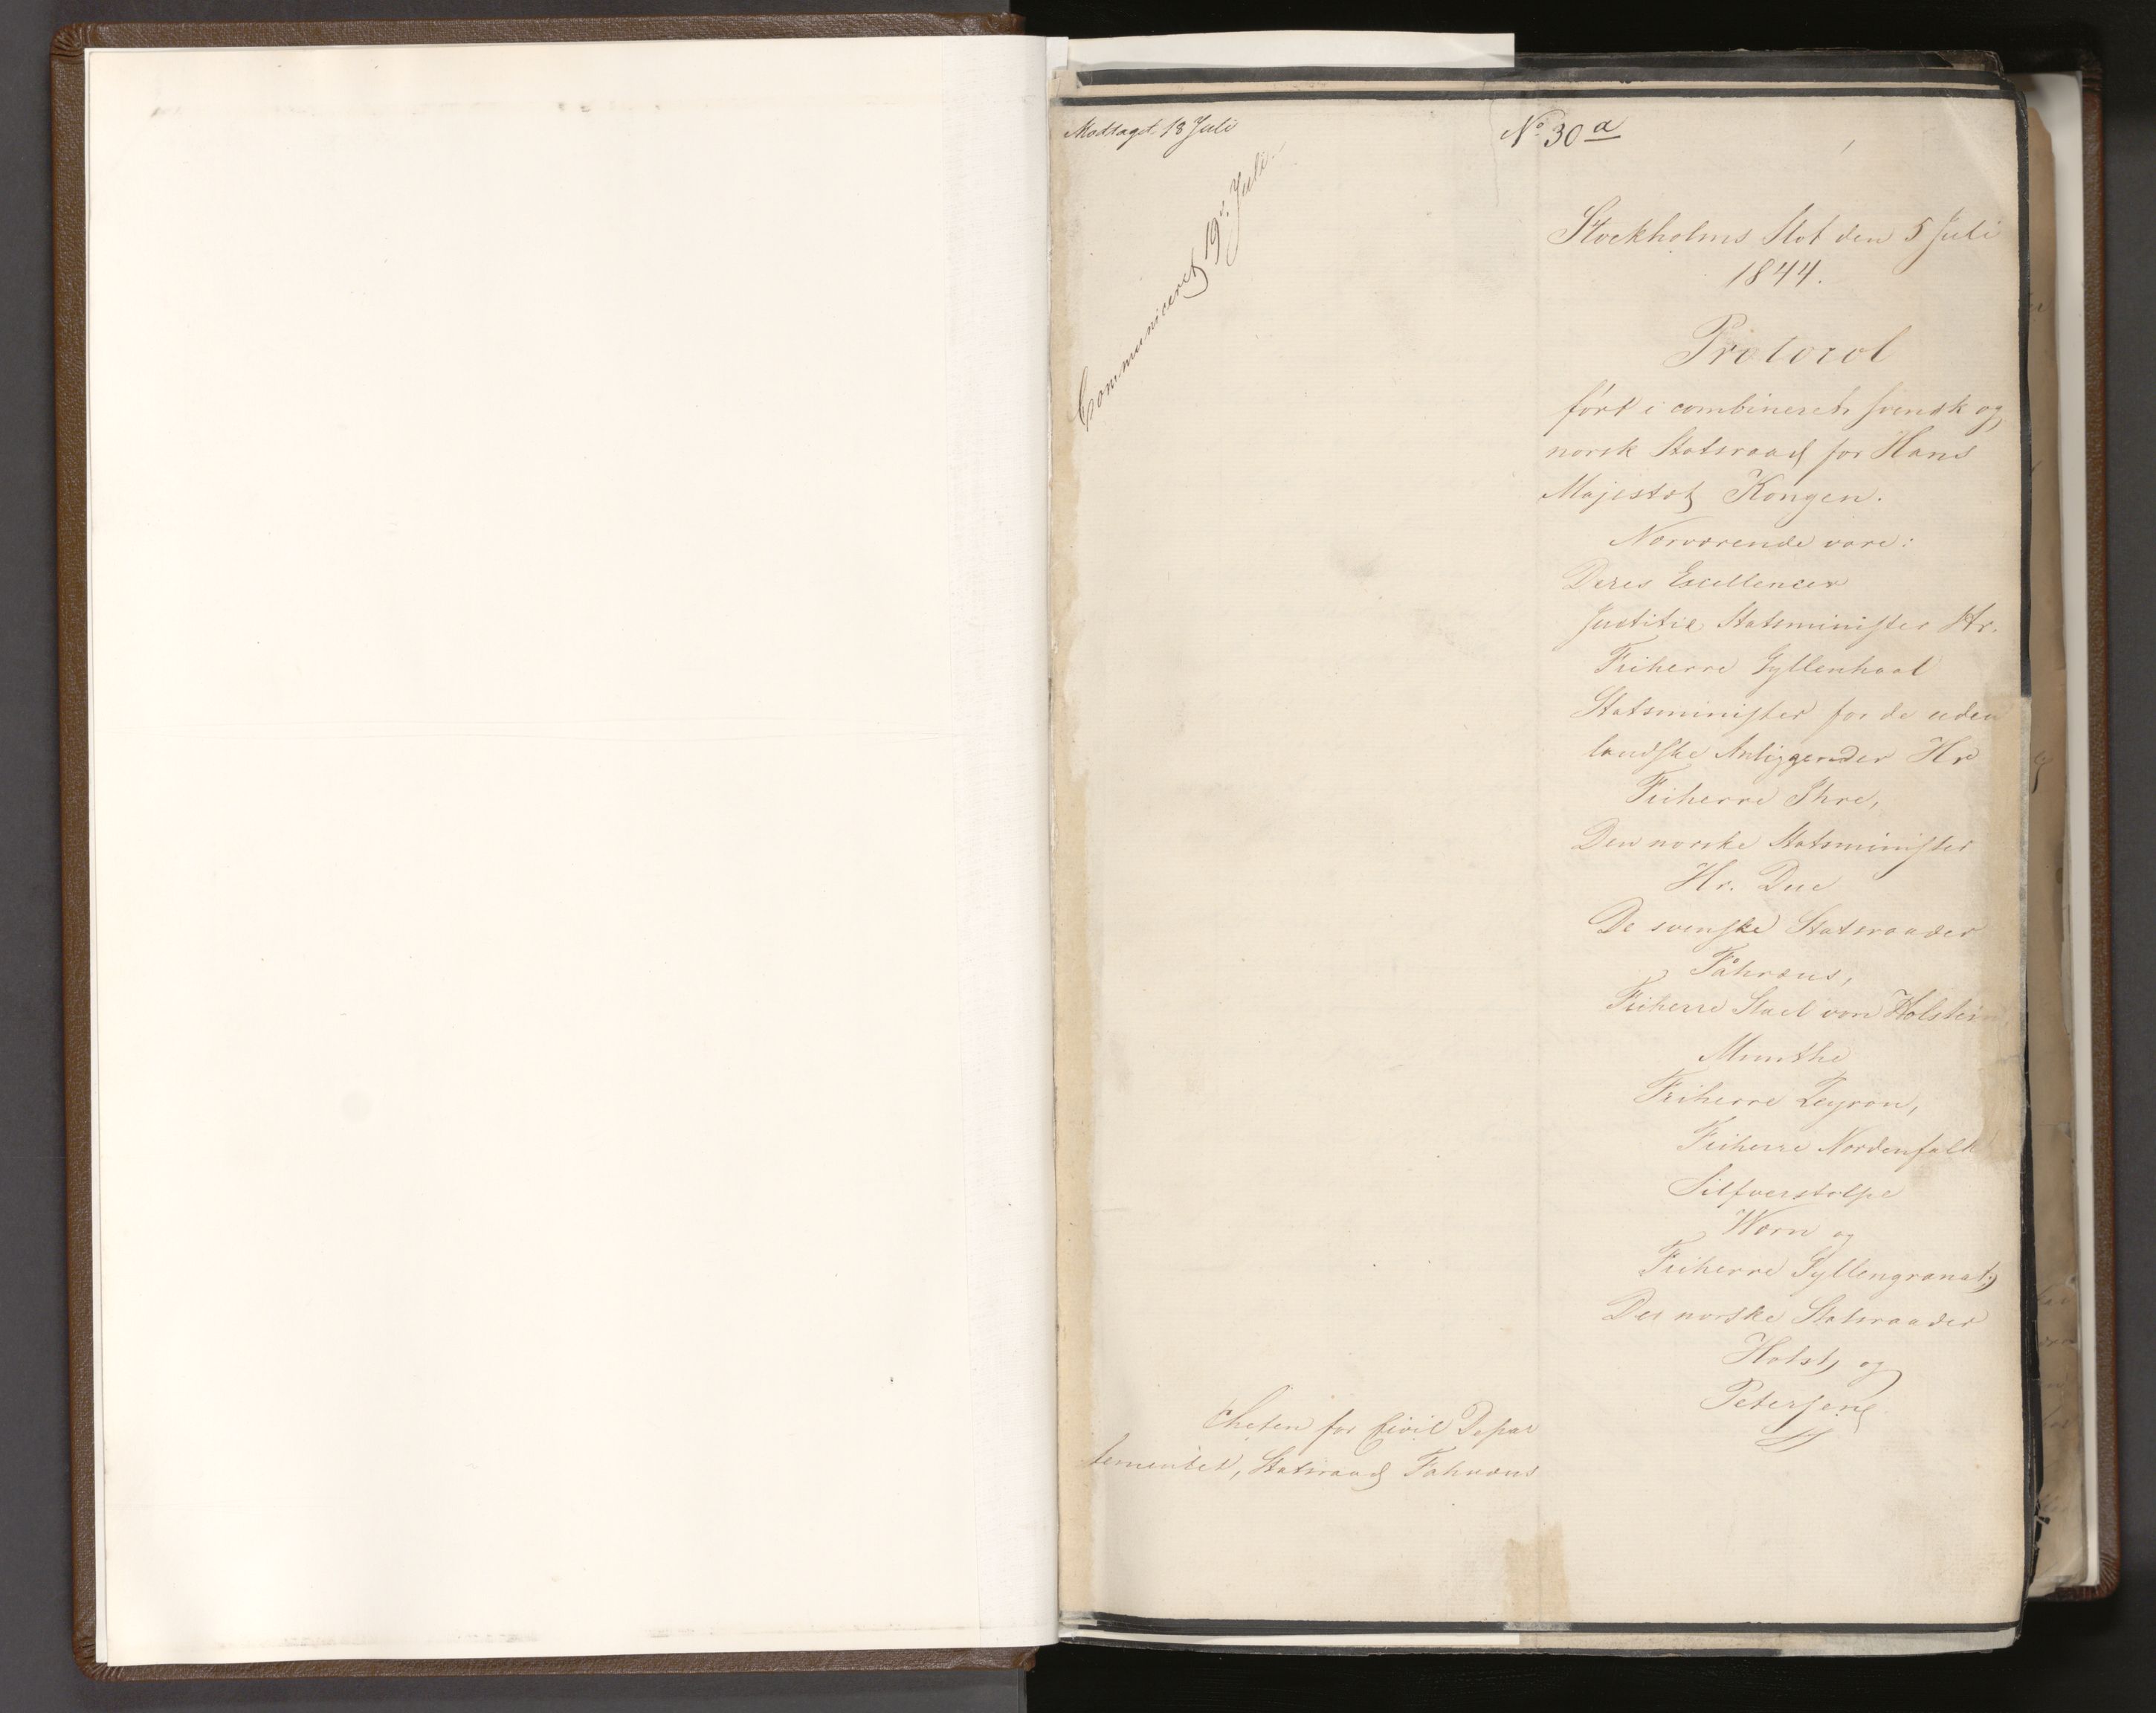 Modtaget 13 Juli
No 30 a
Communiceret 19de Juli
Stockholms Slot den 5 Juli
1844.
Protocol
ført i combineret svensk og
norsk Statsraad for Hans
Majestæt Kongen.
Nærværende vare:
Deres Excellencer
Justitie Statsminister Hr.
Friherre Gyllenhaal
Statsminister for de uden
landske Anliggender Hr
Friherre Ihre,
Den norske Statsminister
Hr. Due
De svenske Statsraader
Fåhræus,
Friherre Stael von Holstein
Munthe
Friherre Peyron,
Friherre Nordenfalk
Silfverstolpe
Wærn og
Friherre Gyllengranat;
De norske Statsraader
Holst, og
Petersen
Chefen for Civil Depar
tementet, Statsraad Fåhræus